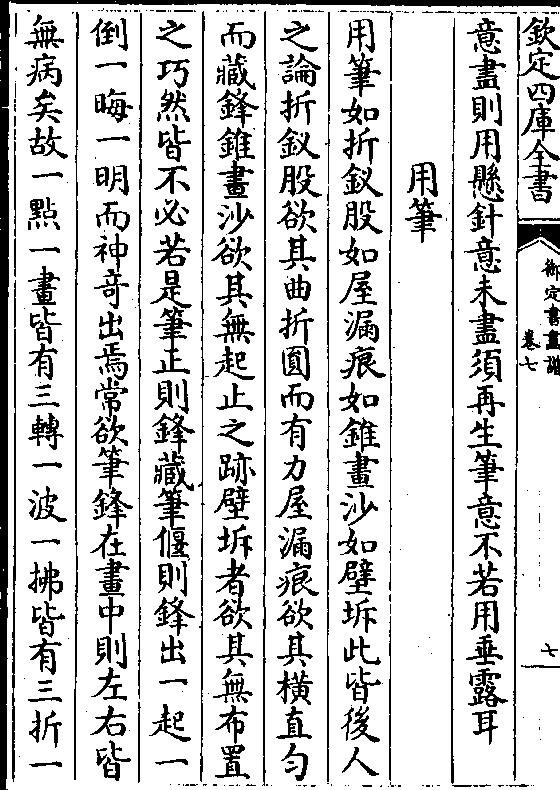 欽定四庫全書
御定書畫譜
卷七
七
意盡則用懸針意未盡須再生筆意不若用垂露耳
用筆
用筆如折釵股如屋漏痕如錐畫沙如壁坼此皆後人
之論折釵股欲其曲折圓而有力屋漏痕欲其橫直勻
而藏鋒錐畫沙欲其無起止之跡壁坼者欲其無布置
之巧然皆不必若是筆正則鋒藏筆偃則鋒出一起一
倒一晦一明而神奇出焉常欲筆鋒在畫中則左右皆
無病矣故一點一畫皆有三轉一波一拂皆有三折一